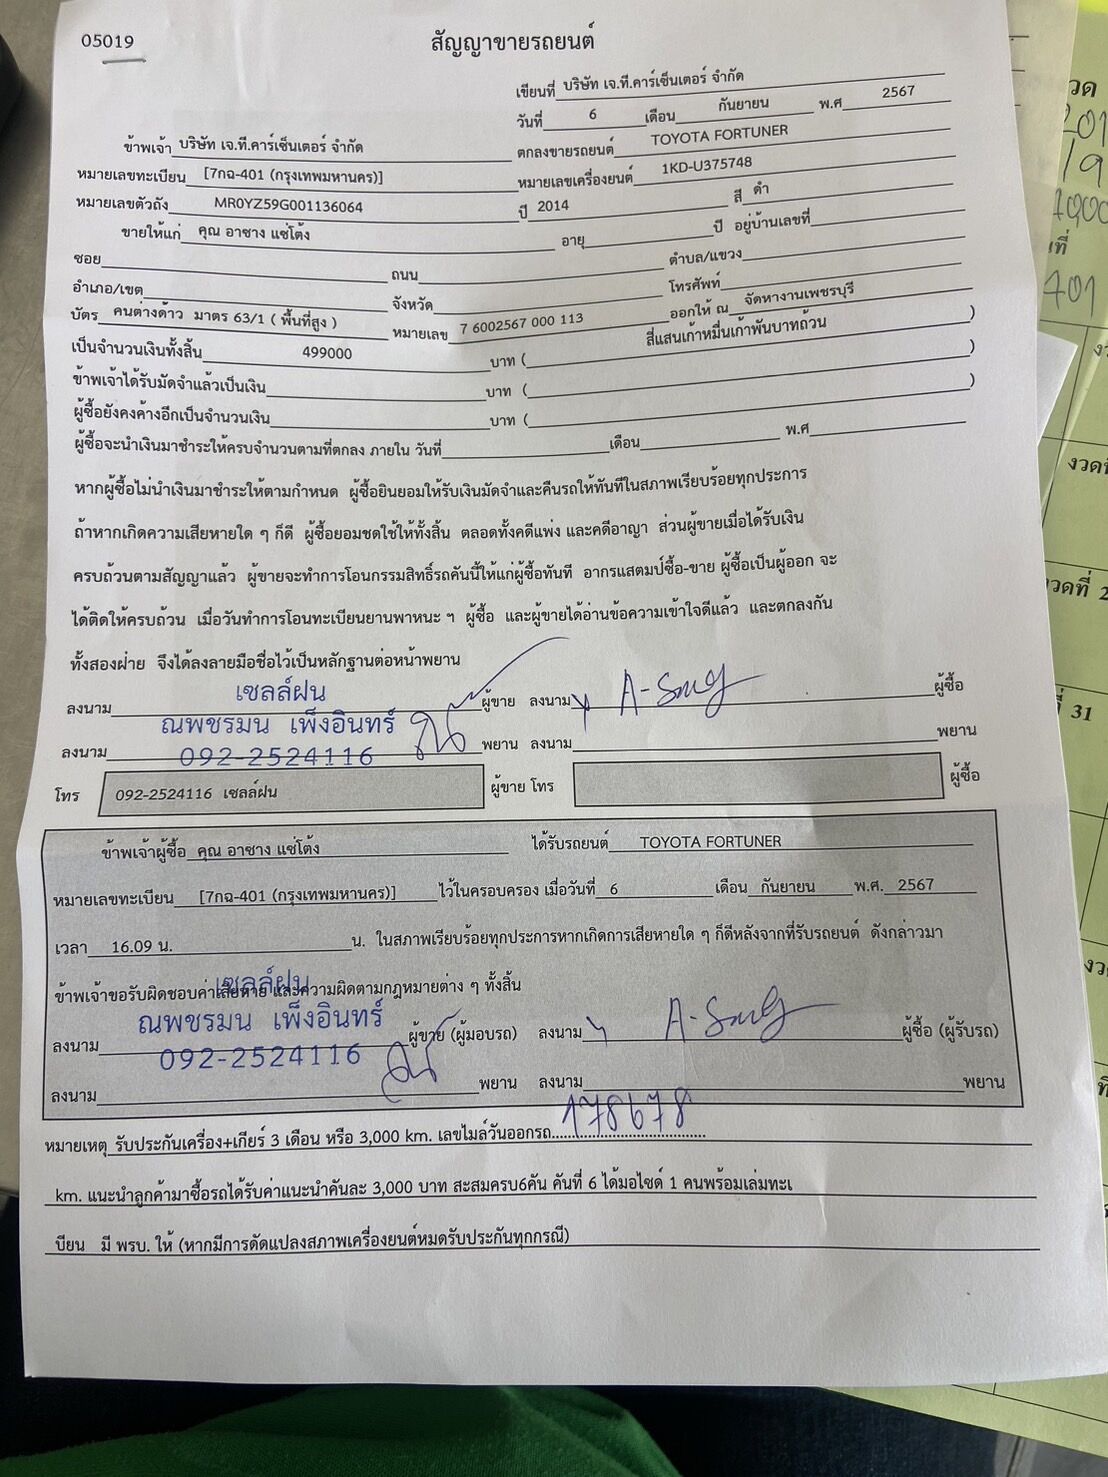 05019
สัญญาขายรถยนต์
เขียนที่ บริษัท เจ.ที.คาร์เซ็นเตอร์ จำกัด
วันที่ 6 เดือน กันยายน พ.ศ 2567
ข้าพเจ้า บริษัท เจ.ที.คาร์เซ็นเตอร์ จำกัด ตกลงขายรถยนต์ TOYOTA FORTUNER
หมายเลขทะเบียน [7กฉ-401 (กรุงเทพมหานคร)] หมายเลขเครื่องยนต์ 1KD-U375748
หมายเลขตัวถัง MR0YZ59G001136064 ปี 2014 สี ดำ
ขายให้แก่ คุณ อาซาง แซ่โต้ง อายุ ปี อยู่บ้านเลขที่
ซอย ถนน ตำบล/แขวง
อำเภอ/เขต จังหวัด โทรศัพท์
บัตร คนต่างด้าว มาตร 63/1 ( พื้นที่สูง ) หมายเลข 7 6002567 000 113 ออกให้ ณ จัดหางานเพชรบุรี
เป็นจำนวนเงินทั้งสิ้น 499000 บาท ( สี่แสนเก้าหมื่นเก้าพันบาทถ้วน )
ข้าพเจ้าได้รับมัดจำแล้วเป็นเงิน บาท ( )
ผู้ซื้อยังคงค้างอีกเป็นจำนวนเงิน บาท ( )
ผู้ซื้อจะนำเงินมาชำระให้ครบจำนวนตามที่ตกลง ภายใน วันที่ เดือน พ.ศ
หากผู้ซื้อไม่นำเงินมาชำระให้ตามกำหนด ผู้ซื้อยินยอมให้รับเงินมัดจำและคืนรถให้ทันทีในสภาพเรียบร้อยทุกประการ
ถ้าหากเกิดความเสียหายใด ๆ ก็ดี ผู้ซื้อยอมชดใช้ให้ทั้งสิ้น ตลอดทั้งคดีแพ่ง และคดีอาญา ส่วนผู้ขายเมื่อได้รับเงิน
ครบถ้วนตามสัญญาแล้ว ผู้ขายจะทำการโอนกรรมสิทธิ์รถคันนี้ให้แก่ผู้ซื้อทันที อากรแสตมป์ซื้อ-ขาย ผู้ซื้อเป็นผู้ออก จะ
ได้ติดให้ครบถ้วน เมื่อวันทำการโอนทะเบียนยานพาหนะ ฯ ผู้ซื้อ และผู้ขายได้อ่านข้อความเข้าใจดีแล้ว และตกลงกัน
ทั้งสองฝ่าย จึงได้ลงลายมือชื่อไว้เป็นหลักฐานต่อหน้าพยาน
เซลล์ฝน
ลงนาม ผู้ขาย ลงนาม A-Sang ผู้ซื้อ
ณพชรมน เพ็งอินทร์
ลงนาม 092-2524116 พยาน ลงนาม พยาน
โทร 092-2524116 เซลล์ฝน ผู้ขาย โทร ผู้ซื้อ
ข้าพเจ้าผู้ซื้อ คุณ อาซาง แซ่โต้ง ได้รับรถยนต์ TOYOTA FORTUNER
หมายเลขทะเบียน [7กฉ-401 (กรุงเทพมหานคร)] ไว้ในครอบครอง เมื่อวันที่ 6 เดือน กันยายน พ.ศ. 2567
เวลา 16.09 น. น. ในสภาพเรียบร้อยทุกประการหากเกิดการเสียหายใด ๆ ก็ดีหลังจากที่รับรถยนต์ ดังกล่าวมา
เซลล์ฝน
ข้าพเจ้าขอรับผิดชอบค่าเสียหาย และความผิดตามกฎหมายต่าง ๆ ทั้งสิ้น
ณพชรมน เพ็งอินทร์
ลงนาม ผู้ขาย (ผู้มอบรถ) ลงนาม A-Sang ผู้ซื้อ (ผู้รับรถ)
092-2524116
ลงนาม พยาน ลงนาม พยาน
หมายเหตุ รับประกันเครื่อง+เกียร์ 3 เดือน หรือ 3,000 km. เลขไมล์วันออกรถ 178678
km. แนะนำลูกค้ามาซื้อรถได้รับค่าแนะนำคันละ 3,000 บาท สะสมครบ6คัน คันที่ 6 ได้มอไซด์ 1 คนพร้อมเล่มทะเ
บียน มี พรบ. ให้ (หากมีการดัดแปลงสภาพเครื่องยนต์หมดรับประกันทุกกรณี)